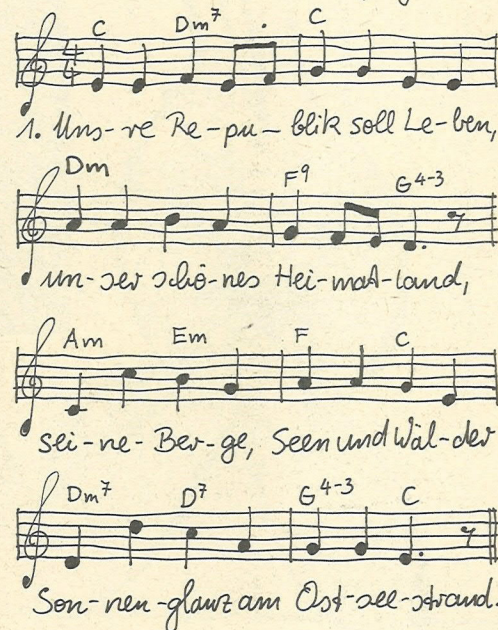 C Dm7 C
4 4
1. Uns-re Re-pu-blik soll Le-ben,
Dm F9 G4-3
un-ser schö-nes Hei-mat-land,
Am Em F C
sei-ne-Ber-ge, Seen und Wäl-der
Dm7 D7 G4-3 C
Son-nen-glanz am Ost-see-strand.